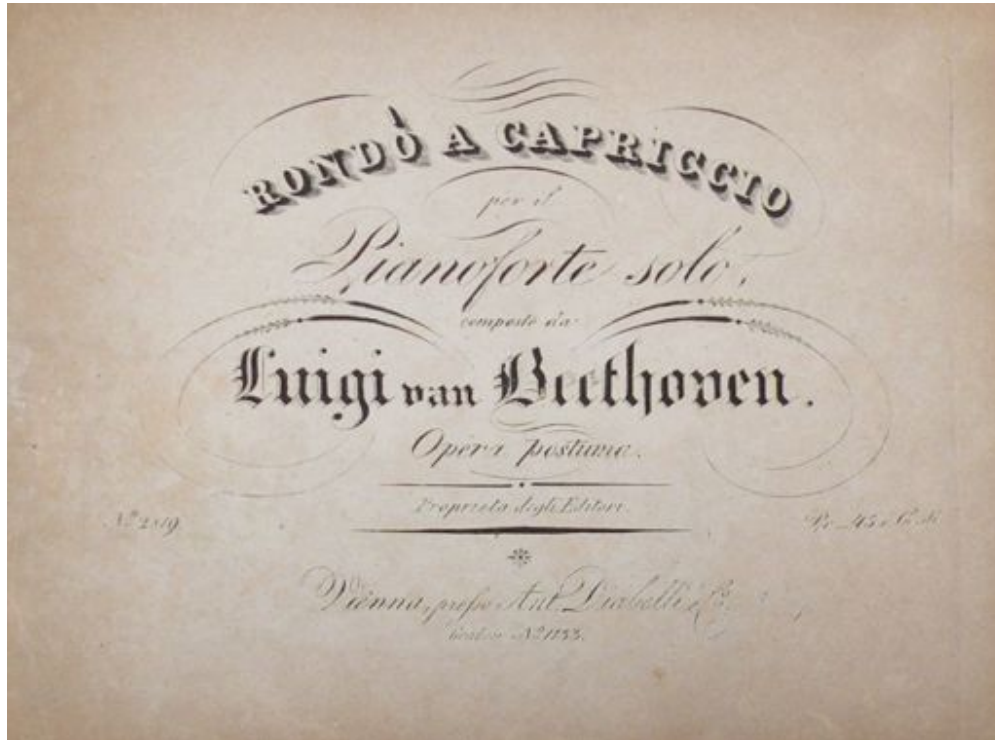 RONDÒ A CAPRICCIO
per il
Pianoforte solo,
composto da
Luigi van Beethoven.
Opera postuma.
Proprietà degli Editori.
Nº 2819.
Vienna, presso Ant. Diabelli e Cº
Graben Nº 1133.